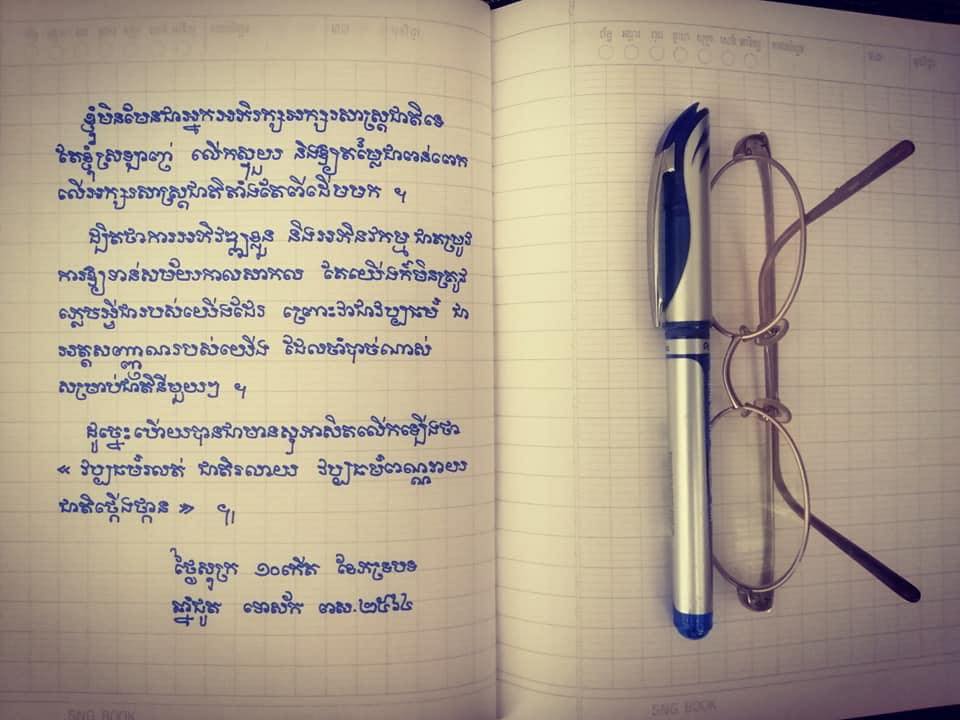 ខ្ញុំមិនមែនជាអ្នកអភិរក្សអក្សរសាស្ត្រជាតិទេ
តែខ្ញុំស្រឡាញ់ លើកស្ទួយ និងឱ្យតម្លៃជាពន់ពេក
លើអក្សរសាស្ត្រជាតិតាំងតែពីដើមមក ។
ដ្បិតថាការអភិវឌ្ឍខ្លួន និងអភិនវកម្ម ជាតម្រូវ
ការឱ្យទាន់សម័យកាលសាកល តែយើងក៏មិនត្រូវ
ភ្លេចអ្វីជារបស់យើងដែរ ព្រោះវាជាវប្បធម៌ ជា
អត្តសញ្ញាណរបស់យើង ដែលចាំបាច់ណាស់
សម្រាប់ជាតិនីមួយៗ ។
ដូច្នេះហើយបានជាមានសុភាសិតលើកឡើងថា
« វប្បធម៌រលត់ ជាតិរលាយ វប្បធម៌ពណ្ណរាយ
ជាតិថ្កើងថ្កាន » ៕
ថ្ងៃសុក្រ ១០កើត ខែភទ្របទ
ឆ្នាំជូត ទោស័ក ព.ស.២៥៦៤
ច័ន្ទ អង្គារ ពុធ ព្រហ សុក្រ សៅរ៍ អាទិត្យ
SNG BOOK
SNG BOOK